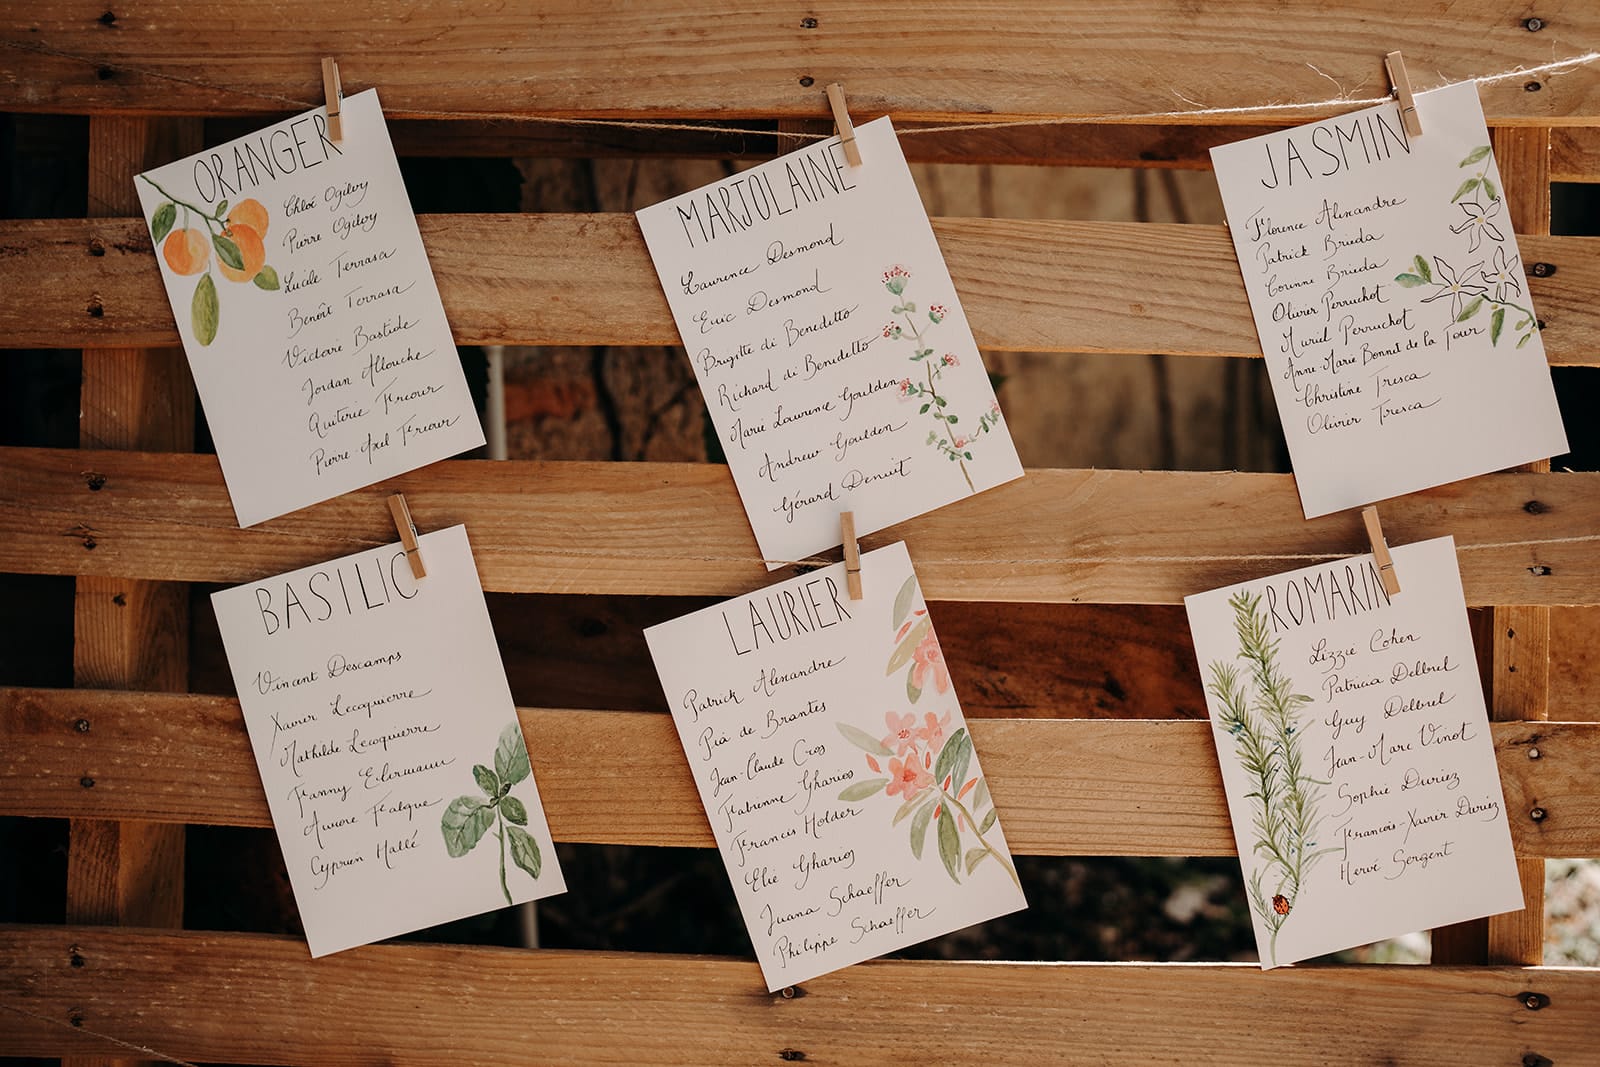 ORANGER
Chloé Ogilvy
Pierre Ogilvy
Lucile Terrasa
Benoît Terrasa
Victoire Bastide
Jordan Allouche
Quiterie Friour
Pierre-Axel Friour
MARJOLAINE
Laurence Desmond
Eric Desmond
Brugitte di Benedetto
Richard di Benedetto
Marie Laurence Goulden
Andrew Goulden
Gérard Denuit
JASMIN
Florence Alexandre
Patrick Brieda
Corinne Brieda
Olivier Perruchot
Muriel Perruchot
Anne-Marie Bonnet de la Tour
Christine Tresca
Olivier Tresca
BASILIC
Vincent Descamps
Xavier Lecoquierre
Mathilde Lecoquierre
Fanny
Aurore Falque
Cyprien Hallé
LAURIER
Patrick Alexandre
Pia de Brantes
Jean-Claude Cros
Fabienne Gharios
Francis Holder
Elie Gharios
Juana Schaeffer
Philippe Schaeffer
ROMARIN
Lizzie Cohen
Patricia Delbrel
Guy Delbrel
Jean-Marc Vinot
Sophie Duriez
François-Xavier Duriez
Hervé Sergent